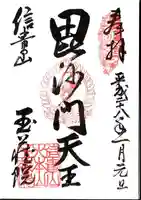 奉拝
平成二十八年一月元旦
毘沙門天王
信貴山
玉蔵院